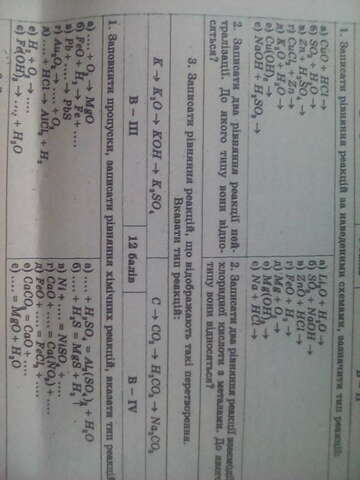 1. Записати рівняння реакцій за наведеними схемами, зазначити тип реакцій:
а) CuO + HCl →
б) SO₃ + H₂O →
в) Zn + H₂SO₄ →
г) CuCl₂ + Zn →
е) Cu(OH)₂ →
є) NaOH + H₂SO₄ →
а) Li₂O + H₂O →
б) SO₂ + NaOH →
в) ZnO + HCl →
г) FeO + H₂ →
д) Mg + O₂ →
е) Mg(OH)₂ →
є) Na + HCl →
2. Записати два рівняння реакції нейтралізації. До якого типу вони відносяться?
2. Записати два рівняння реакції взаємодії хлоридної кислоти з металами. До якого типу вони відносяться?
3. Записати рівняння реакцій, що відображають такі перетворення.
Вказати тип реакцій:
K → K₂O → KOH → K₂SO₄
C → CO₂ → H₂CO₃ → Na₂CO₃
В – III
12 балів
В – IV
1. Заповнити пропуски, записати рівняння хімічних реакцій, вказати тип реакцій
а) .... + O₂ → MgO
б) FeO + H₂ → Fe + ....
в) Pb + .... → PbS
г) Au₂O₃ → .... + O₂
д) .... + HCl → AlCl₃ + H₂
е) H₂ + O₂ → ....
є) Fe(OH)₃ → .... + H₂O
а) .... + H₂SO₄ = Al₂(SO₄)₃ + H₂O
б) .... + H₂S = MgS + H₂↑
в) Ni + .... = NiSO₄ + ....
г) CaO + .... = Ca(NO₃)₂ + ....
д) FeO + .... = FeCl₂ + ....
е) CaCO₃ = CaO + ....
є) .... = MgO + H₂O